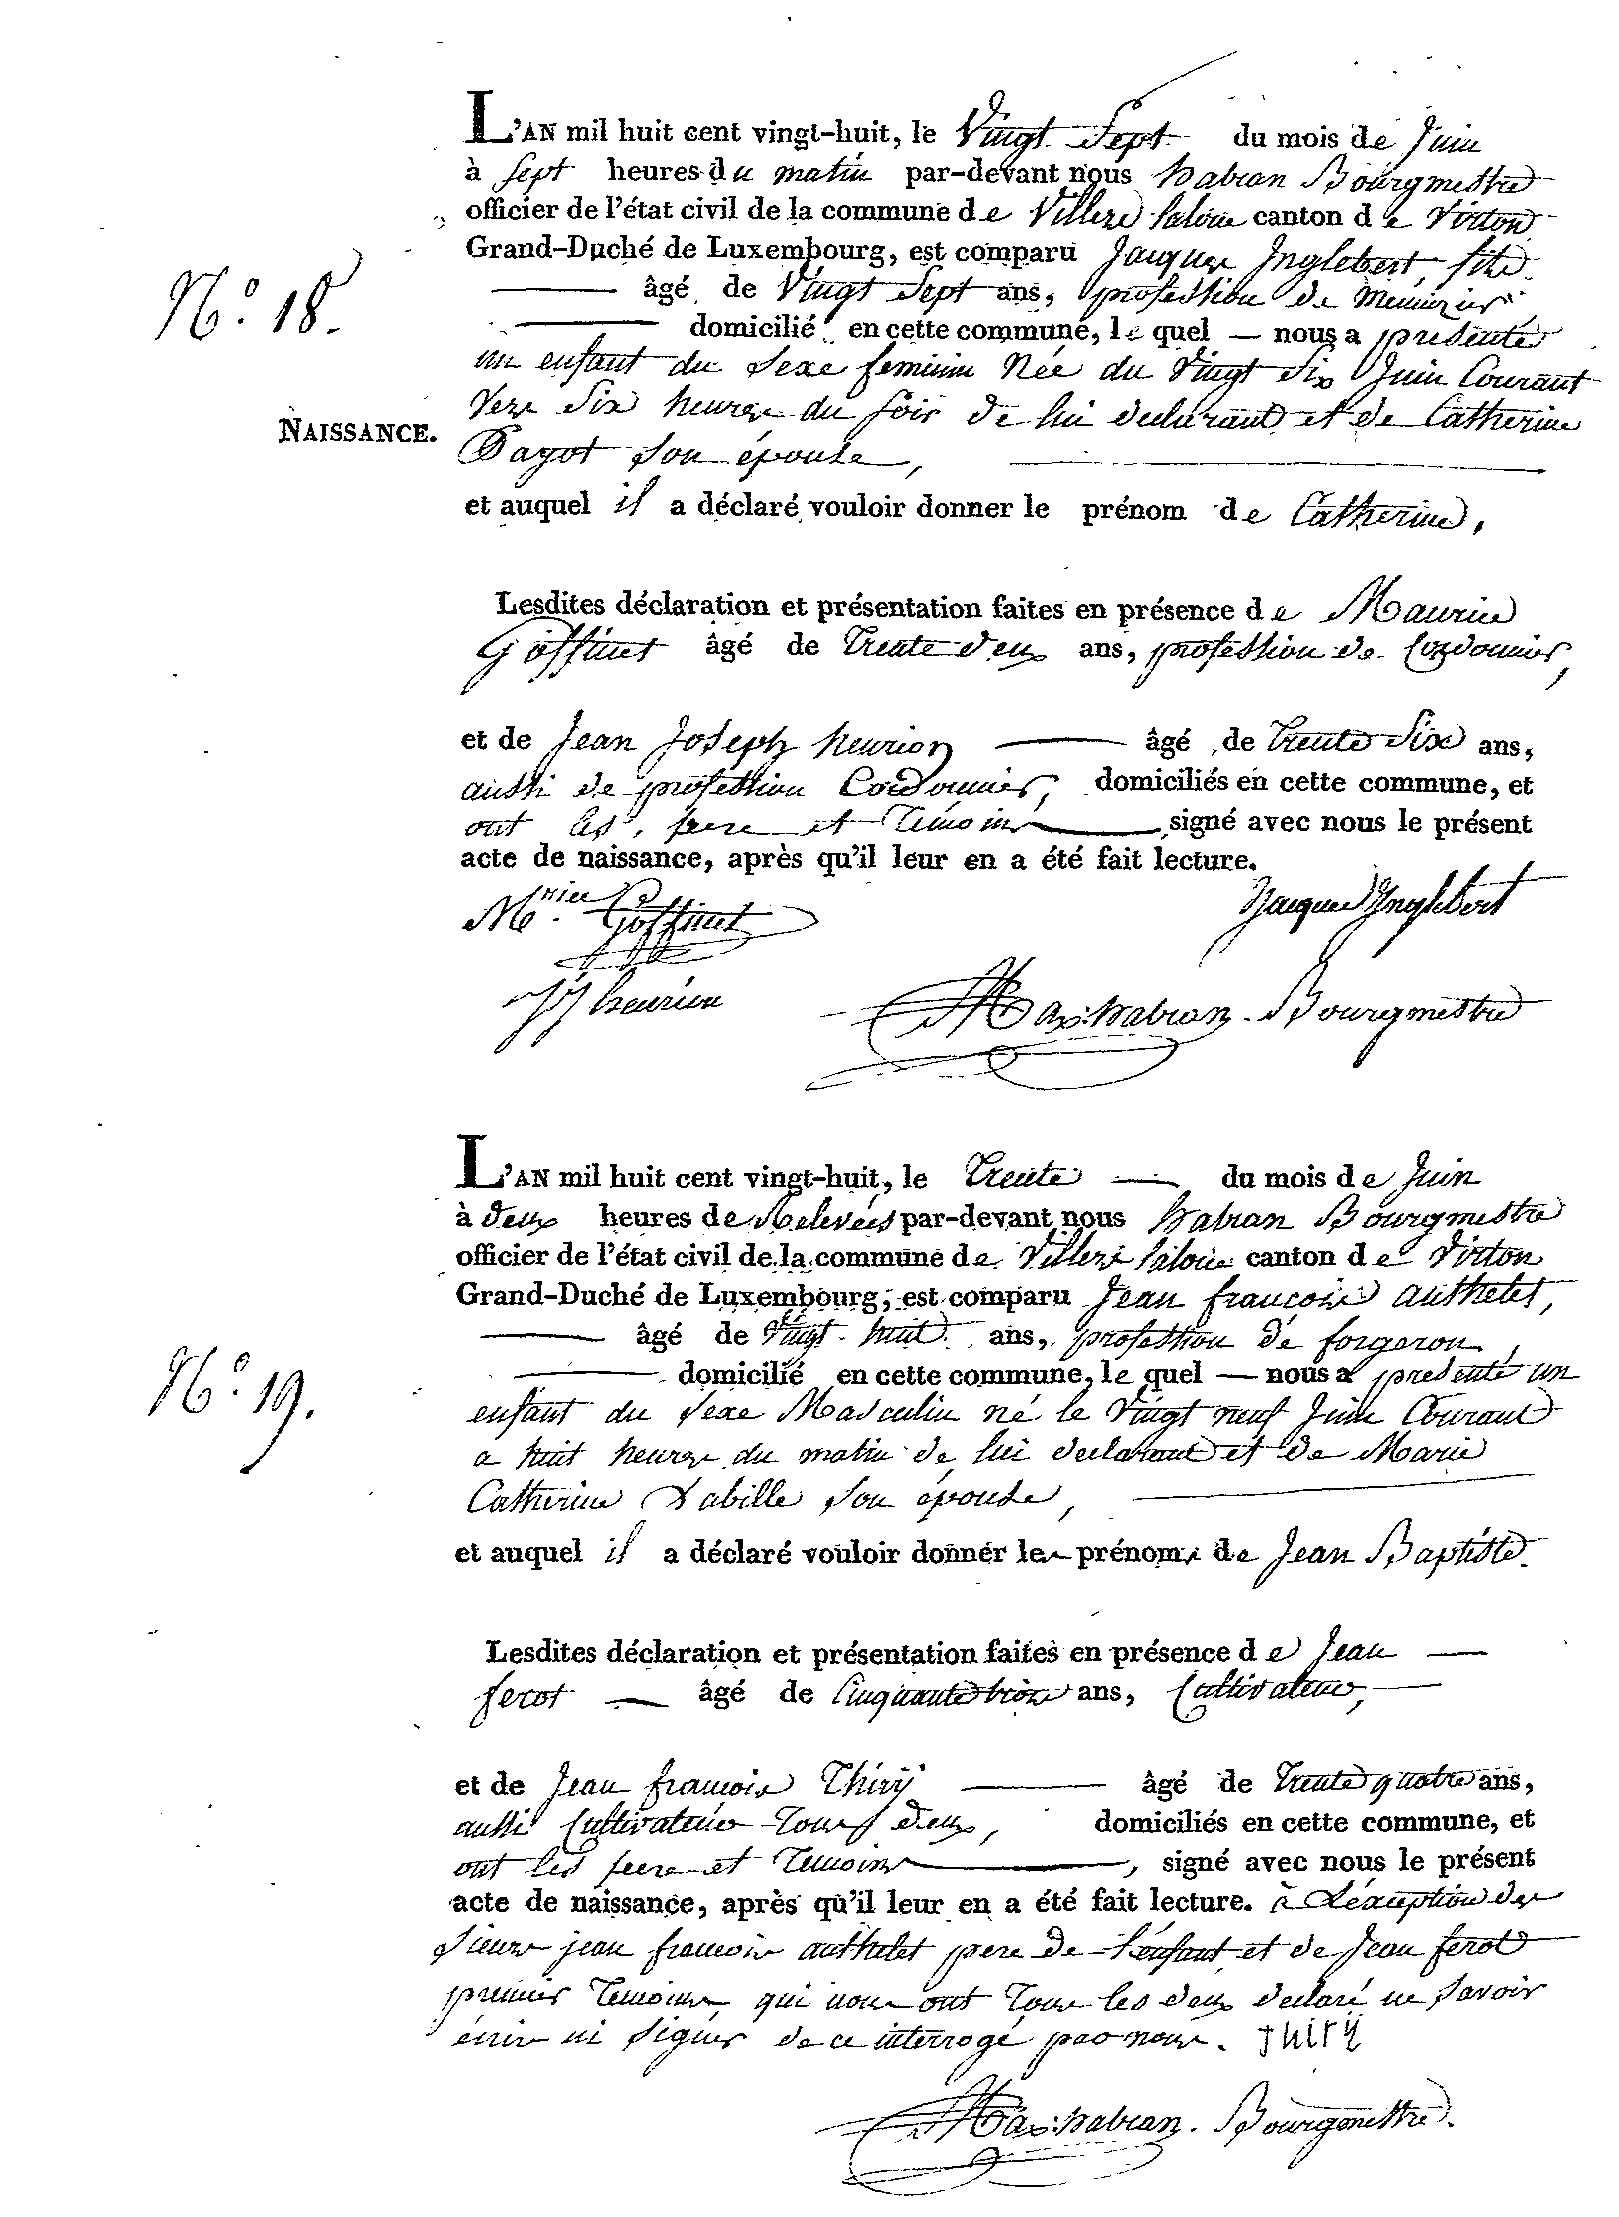 L'AN mil huit cent vingt-huit, le Vingt Sept du mois de Juin
à Sept heures du matin par-devant nous habran Bourgmestre
officier de l'état civil de la commune de Villers Saloue canton de Virton
Grand-Duché de Luxembourg, est comparu Jacques Inglebert, fils
âgé de Vingt Sept ans, profession de Menuzier
N.o 18.
domicilié en cette commune, le quel — nous a presenté
un enfant du Sexe feminin Née du Vingt Six Juin Courant
Vers Six heures du soir de lui declarant et de Catherine
NAISSANCE.
Pagot son épouse,
et auquel il a déclaré vouloir donner le prénom de Catherine,
Lesdites déclaration et présentation faites en présence de Maurice
Goffinet âgé de Trente deux ans, profession de Cordonnier,
et de Jean Joseph henrion âgé de Trente Six ans,
aussi de profession Cordonnier, domiciliés en cette commune, et
ont les père et Témoins signé avec nous le présent
acte de naissance, après qu'il leur en a été fait lecture.
M.rice Goffinet Jacques Inglebert
JJ henrion Max habran. Bourgmestre
L'AN mil huit cent vingt-huit, le Trente du mois de Juin
à deux heures de Relevées par-devant nous habran Bourgmestre
officier de l'état civil de la commune de Villers Saloue canton de Virton
Grand-Duché de Luxembourg, est comparu Jean francois authelet,
âgé de Vingt huit ans, profession de forgeron,
N.o 19.
domicilié en cette commune, le quel — nous a presenté un
enfant du Sexe Masculin né le Vingt neuf Juin Courant
a huit heures du matin de lui declarant et de Marie
Catherine Labille son épouse,
et auquel il a déclaré vouloir donner les prénoms de Jean Baptiste.
Lesdites déclaration et présentation faites en présence de Jean
ferot âgé de Cinquante trois ans, Cultivateur,
et de Jean francois Thirÿ âgé de Trente quatre ans,
aussi Cultivateur Tous deux, domiciliés en cette commune, et
ont les père et Temoins, signé avec nous le présent
acte de naissance, après qu'il leur en a été fait lecture. à L'éxception des
Sieurs jean francois authelet pere de l'enfant et de Jean ferot
premier Temoins qui nous ont Tous les deux declaré ne Savoir
écrire ni Signer de ce interrogé par nous. thirÿ
Max habran. Bourgmestre.